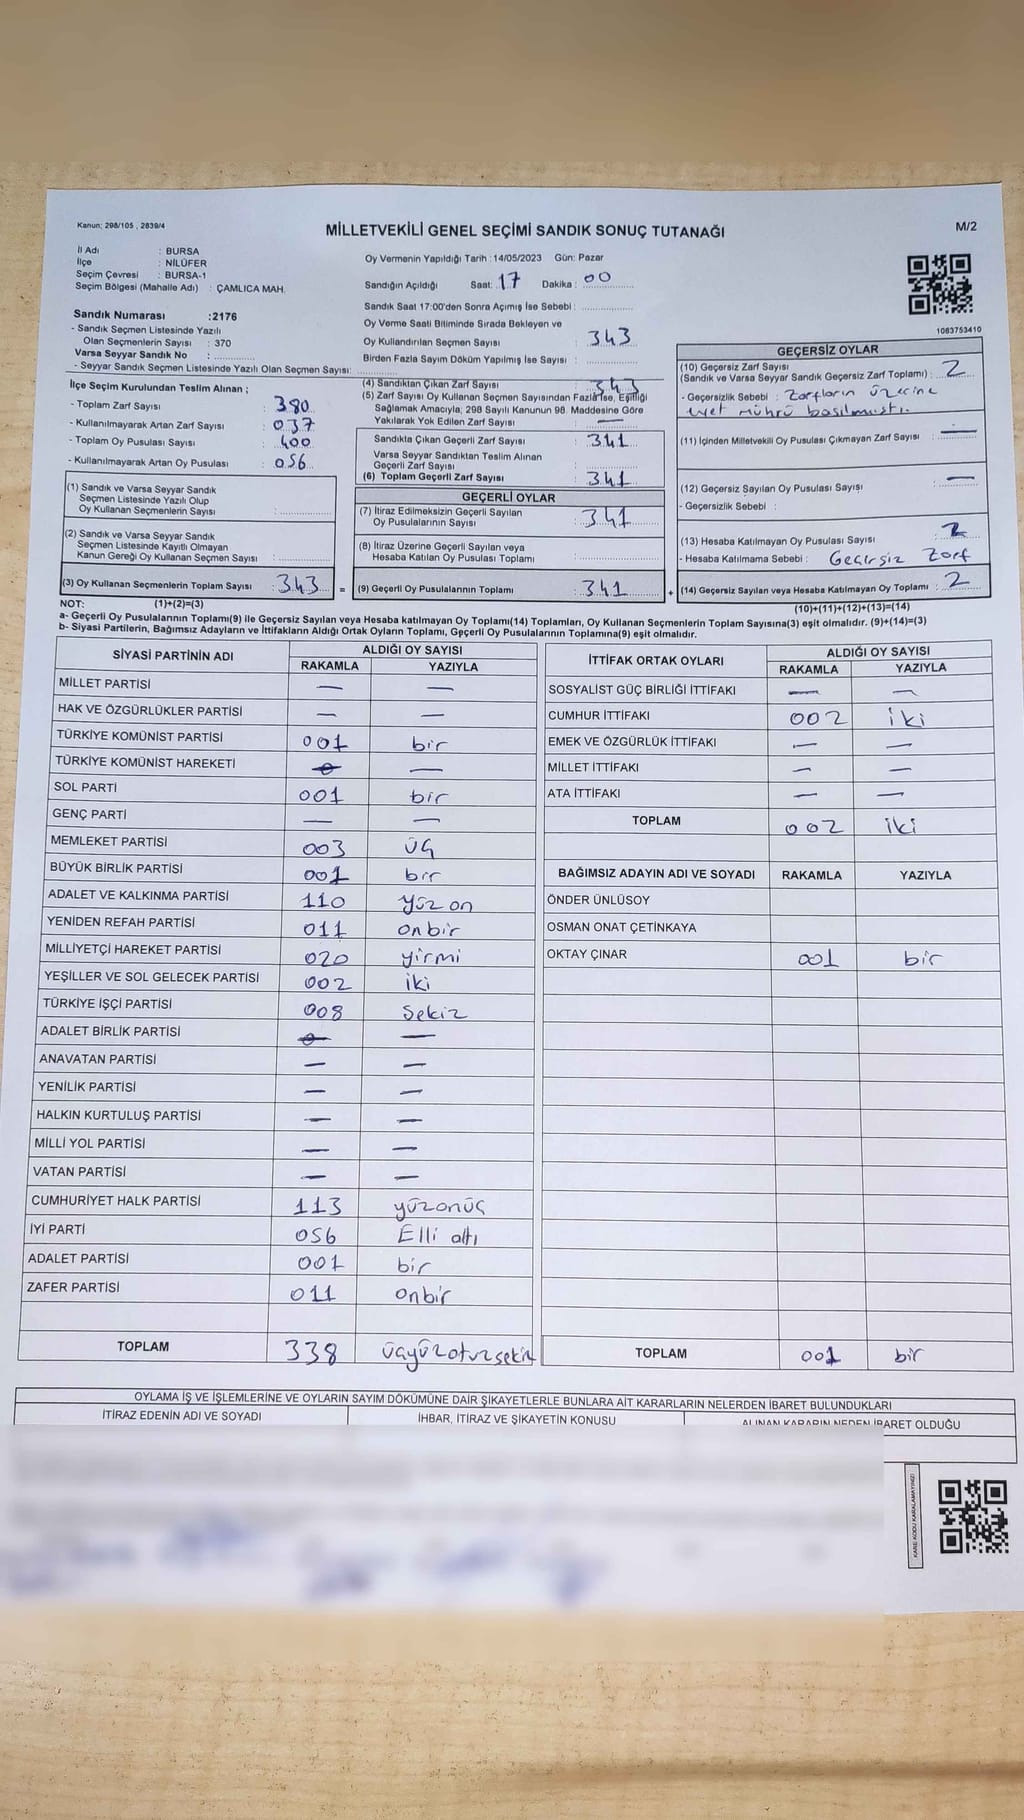 Kanun; 298/105 , 2839/4
MİLLETVEKİLİ GENEL SEÇİMİ SANDIK SONUÇ TUTANAĞI
M/2
İl Adı : BURSA
İlçe : NİLÜFER
Seçim Çevresi : BURSA-1
Seçim Bölgesi (Mahalle Adı) : ÇAMLICA MAH.
Sandık Numarası :2176
- Sandık Seçmen Listesinde Yazılı
Olan Seçmenlerin Sayısı : 370
Varsa Seyyar Sandık No :
- Seyyar Sandık Seçmen Listesinde Yazılı Olan Seçmen Sayısı:
Oy Vermenin Yapıldığı Tarih :14/05/2023 Gün: Pazar
Sandığın Açıldığı Saat: 17 Dakika : 00
Sandık Saat 17:00'den Sonra Açımış İse Sebebi :
Oy Verme Saati Bitiminde Sırada Bekleyen ve
Oy Kullandırılan Seçmen Sayısı : 343
Birden Fazla Sayım Döküm Yapılmış İse Sayısı :
1063753410
İlçe Seçim Kurulundan Teslim Alınan ;
- Toplam Zarf Sayısı : 380
- Kullanılmayarak Artan Zarf Sayısı : 037
- Toplam Oy Pusulası Sayısı : 400
- Kullanılmayarak Artan Oy Pusulası : 056
(1) Sandık ve Varsa Seyyar Sandık
Seçmen Listesinde Yazılı Olup
Oy Kullanan Seçmenlerin Sayısı :
(2) Sandık ve Varsa Seyyar Sandık
Seçmen Listesinde Kayıtlı Olmayan
Kanun Gereği Oy Kullanan Seçmen Sayısı :
(3) Oy Kullanan Seçmenlerin Toplam Sayısı : 343 =
(4) Sandıktan Çıkan Zarf Sayısı : 343
(5) Zarf Sayısı Oy Kullanan Seçmen Sayısından Fazla İse, Eşitliği
Sağlamak Amacıyla, 298 Sayılı Kanunun 98. Maddesine Göre
Yakılarak Yok Edilen Zarf Sayısı : —
Sandıkta Çıkan Geçerli Zarf Sayısı : 341
Varsa Seyyar Sandıktan Teslim Alınan
Geçerli Zarf Sayısı :
(6) Toplam Geçerli Zarf Sayısı : 341
GEÇERLİ OYLAR
(7) İtiraz Edilmeksizin Geçerli Sayılan
Oy Pusulalarının Sayısı : 341
(8) İtiraz Üzerine Geçerli Sayılan veya
Hesaba Katılan Oy Pusulası Toplamı :
(9) Geçerli Oy Pusulalarının Toplamı : 341 +
GEÇERSİZ OYLAR
(10) Geçersiz Zarf Sayısı
(Sandık ve Varsa Seyyar Sandık Geçersiz Zarf Toplamı) : 2
- Geçersizlik Sebebi : Zarfların üzerine
evet mührü basılmıştı.
(11) İçinden Milletvekili Oy Pusulası Çıkmayan Zarf Sayısı : —
(12) Geçersiz Sayılan Oy Pusulası Sayısı : —
- Geçersizlik Sebebi :
(13) Hesaba Katılmayan Oy Pusulası Sayısı : 2
- Hesaba Katılmama Sebebi : Geçersiz Zarf
(14) Geçersiz Sayılan veya Hesaba Katılmayan Oy Toplamı : 2
NOT: (1)+(2)=(3)
(10)+(11)+(12)+(13)=(14)
a- Geçerli Oy Pusulalarının Toplamı(9) ile Geçersiz Sayılan veya Hesaba katılmayan Oy Toplamı(14) Toplamları, Oy Kullanan Seçmenlerin Toplam Sayısına(3) eşit olmalıdır. (9)+(14)=(3)
b- Siyasi Partilerin, Bağımsız Adayların ve İttifakların Aldığı Ortak Oyların Toplamı, Geçerli Oy Pusulalarının Toplamına(9) eşit olmalıdır.
SİYASİ PARTİNİN ADI ALDIĞI OY SAYISI
RAKAMLA YAZIYLA
MİLLET PARTİSİ — —
HAK VE ÖZGÜRLÜKLER PARTİSİ — —
TÜRKİYE KOMÜNİST PARTİSİ 001 bir
TÜRKİYE KOMÜNİST HAREKETİ —
SOL PARTİ 001 bir
GENÇ PARTİ — —
MEMLEKET PARTİSİ 003 üç
BÜYÜK BİRLİK PARTİSİ 001 bir
ADALET VE KALKINMA PARTİSİ 110 yüz on
YENİDEN REFAH PARTİSİ 011 onbir
MİLLİYETÇİ HAREKET PARTİSİ 020 yirmi
YEŞİLLER VE SOL GELECEK PARTİSİ 002 iki
TÜRKİYE İŞÇİ PARTİSİ 008 sekiz
ADALET BİRLİK PARTİSİ —
ANAVATAN PARTİSİ — —
YENİLİK PARTİSİ — —
HALKIN KURTULUŞ PARTİSİ — —
MİLLİ YOL PARTİSİ — —
VATAN PARTİSİ — —
CUMHURİYET HALK PARTİSİ 113 yüzonüç
İYİ PARTİ 056 Elli altı
ADALET PARTİSİ 001 bir
ZAFER PARTİSİ 011 onbir
TOPLAM 338 üçyüzotuzsekiz
İTTİFAK ORTAK OYLARI ALDIĞI OY SAYISI
RAKAMLA YAZIYLA
SOSYALİST GÜÇ BİRLİĞİ İTTİFAKI — —
CUMHUR İTTİFAKI 002 iki
EMEK VE ÖZGÜRLÜK İTTİFAKI — —
MİLLET İTTİFAKI — —
ATA İTTİFAKI — —
TOPLAM 002 iki
BAĞIMSIZ ADAYIN ADI VE SOYADI RAKAMLA YAZIYLA
ÖNDER ÜNLÜSOY
OSMAN ONAT ÇETİNKAYA
OKTAY ÇINAR 001 bir
TOPLAM 001 bir
OYLAMA İŞ VE İŞLEMLERİNE VE OYLARIN SAYIM DÖKÜMÜNE DAİR ŞİKAYETLERLE BUNLARA AİT KARARLARIN NELERDEN İBARET BULUNDUKLARI
İTİRAZ EDENİN ADI VE SOYADI İHBAR, İTİRAZ VE ŞİKAYETİN KONUSU ALINAN KARARIN NEDEN İBARET OLDUĞU
KARE KODU KARALAMAYINIZ!